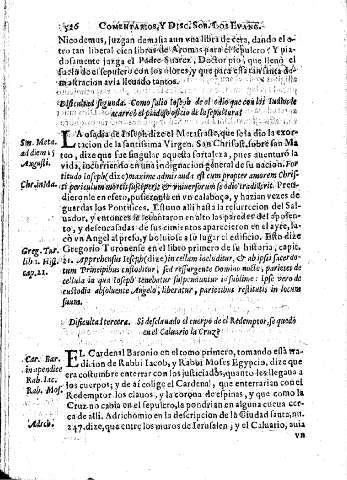 526 COMENTARIOS, Y DISC. SOB. LOS EVANG.
Nicodemus, juzgan demasia aun vna libra de cera, dando el o-
tro tan liberal cien libras de Aromas para el sepulcro? Y pia-
dosamente juzga el Padre Suarez, Doctor pio, que llenò el
suelo de el sepulcro con olores, y que para esta santa
mastraion avian llevado tantos.
Dificultad segunda. Como salio Ioseph de el odio que con los Iudios le
acarreò el piadoso oficio de la sepultura?
Sm. Meta.
ad diem 15
Augusti.
Chr. in Ma.
LA osadia de Ioseph, dize el Metafraste, que se la dio la exor-
tacion de la santissima Virgen. San Chrisost. sobre san Ma
teo, dize que fue singular aquesta fortaleza, pues auenturò la
vida, incurriendo en vna indignacion general de su nacion. For
titudo Ioseph (dize) maxime admiranda est cum propter amorem Chri-
sti periculum mortis susceperit, & vniuersorum se odio tradiderit. Pren-
dieronle en efeto, pusieronle en vn calaboço, y hazian vezes de
guardas los Pontifices. Estuuo alli hasta la resurreccion del Sal-
uador, y entonces se leuantaron en alto las paredes del aposen-
to, y defencasadas de sus cimientos aparecieron en el ayre, sa-
cò vn Angel al preso, y boluiose a su lugar el edificio. Esto dize
Greg. Tur.
lib. 1. Hist.
cap. 21.
Gregorio Turonense en el libro primero de su historia, capit.
21. Apprehensus Ioseph (dize) in cellam includitur, & ab ipsis sacerdo-
tum Principibus custoditur, sed resurgente Domino nocte, parietes de
cellula in qua Ioseph tenebatur suspenduntur in sublime: Ipse vero de
custodia absoluente Angelo, liberatur, parietibus restitutis in locum
suum.
Dificultad tercera. Si desclauado el cuerpo de el Redemptor, se quedò
en el Caluario la Cruz?
Car. Bar.
in apendice
Rab. Iac.
Rab. Mos.
EL Cardenal Baronio en el tomo primero, tomando esta tra-
dicion de Rabbi Iacob, y Rabbi Moses Egypcio, dize que
era costumbre enterrar con los justiciados, quanto les llegaua a
los cuerpos; y de aì colige el Cardenal, que enterrarian con el
Redemptor los clauos, y la corona de espinas, y que como la
Cruz no cabia en el sepulcro, la pondrian en alguna cueua cer-
ca de alli. Adrichomio en la descripcion de la Ciudad santa, nu.
Adrich.
247. dize, que entre los muros de Ierusalen, y el Caluario, auia
vn